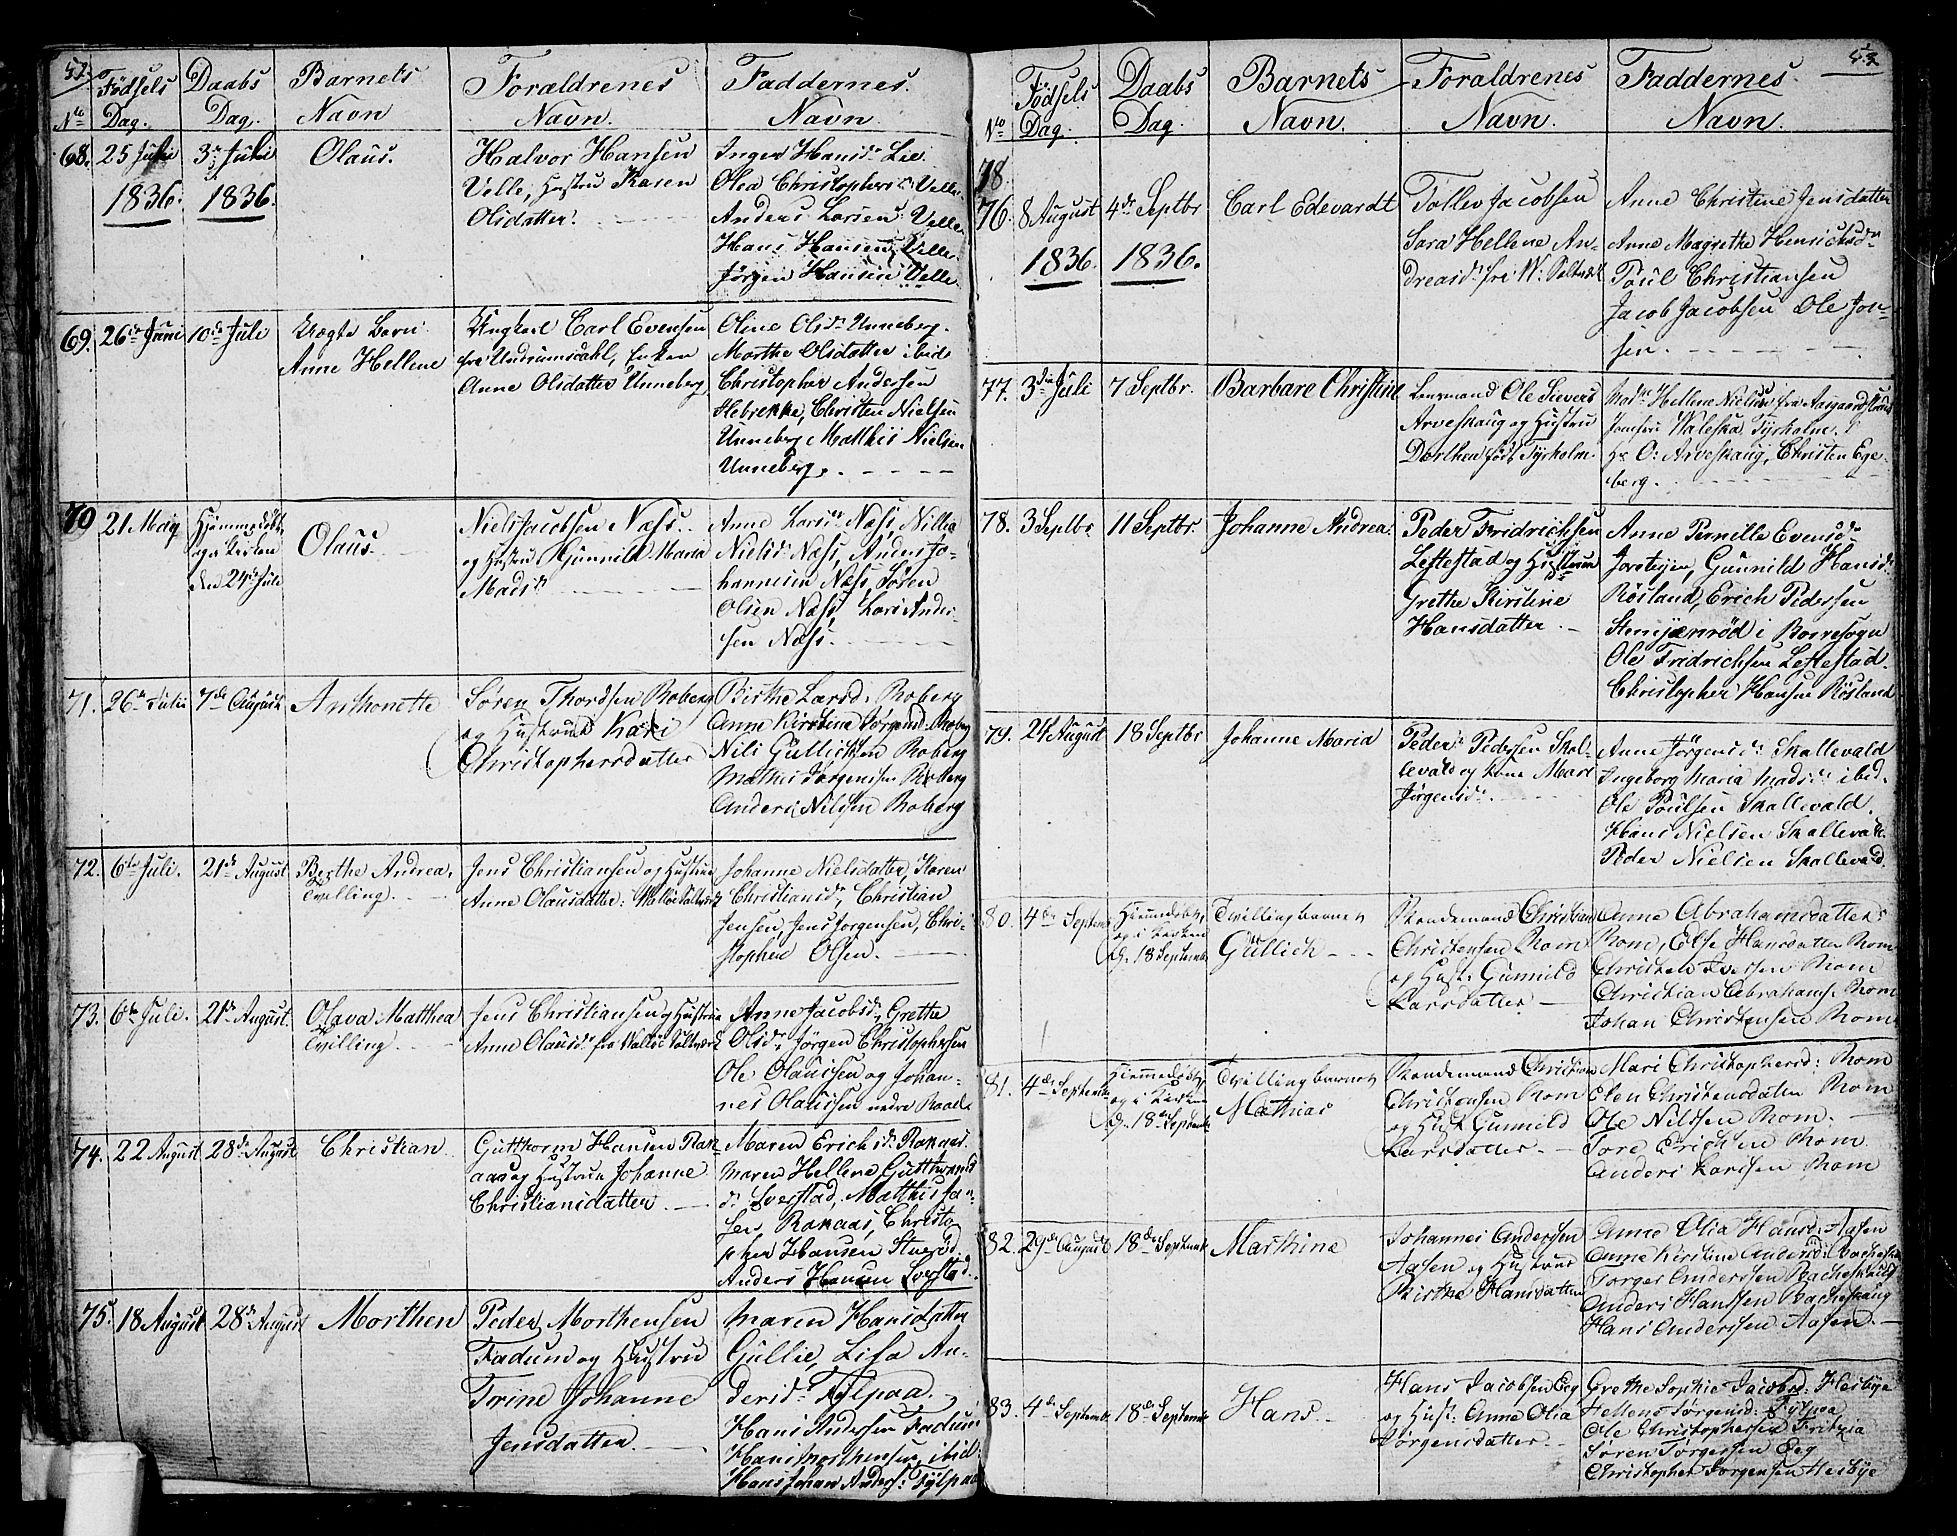 52.
No
Fødsels
Dag.
Daabs
Dag.
Barnets
Navn
Forældrenes
Navn.
Faddernes.
Navn.
68. 25 Juni
1836.
3 Juli
1836.
Olaus.
Halvor Hansen
Velle, Hustru Karen
Olsdatter.
Inger Hansdr Lie.
Olea Christophersdr Velle
Anders Larsen Velle
Hans Hansen Velle
Jørgen Hansen Velle.
69. 26de Juni
10de Juli
Uægte Barn
Anne Hellene
Ungkarl Carl Evensen
fra Undrumsdahl, Enken
Anne Olsdatter Unneberg
Oline Olsdr Unneberg.
Marthe Olsdatter ibid
Christopher Andersen
Hebrekke, Christen Nielsen
Unneberg Matthis Nielsen
Unneberg.
70 21 Maij
Hjemmedøbt
og i Kirken
den 24de Juli
Olaus.
Niels Jacobsen Næss.
og Hustru Gunnild Maria
Madsdr
Anne Larsdr Næss,
Nielsdr Næss, Anders Jo-
hannesen Næss, Søren
Olsen Næss, Lars Ander-
sen Næss.
71. 26de Julii
7de August
Anthonette
Søren Thordsen Roberg
og Hustrue Kari
Christophersdatter
Birthe Larsd: Roberg
Anne Kirstine Jørgensd: Roberg
Nils Gullichsen Roberg
Mathis Jørgensen Roberg
Anders Nilsen Roberg
72. 6te Juli.
21de August
Berthe Andrea,
Tvilling.
Jens Christiansen og Hustrue
Anne Olausdatter: Walløe Saltværk
Johanne Nielsdatter, Karen
Christiansdr, Christian
Jensen, Jens Jørgensen, Chri-
stopher Olsen.
73. 6te Juli.
21de August.
Olava Matthea
Tvilling.
Jens Christiansen og Hustrue
Anne Olausdr fra Walløe Saltværk
Anne Jacobsdr, Grethe
Olsdr, Jørgen Christophersen
Ole Olaussen og Johan-
nes Olaussen nedre Raael.
74. 22 August
28de August
Christian
Gutthorm Hansen Rak
aas og Hustrue Johanne
Christiansdatter.
Maren Erichsdr Rakaas.
Maren Hellene Gutthormd
dr Sverstad, Matthis Jan-
sen Rakaas, Christo
pher Hansen
Anders Hansen Sverstad.
75. 18 August
28de August
Morthen
Peder Morthensen
Fadum og Hustru
Trine Johanne
Jensdatter.
Maren Hansdatter
Gullie, Lisa An-
dersdr Tylpaa.
Hans Andersen Fadum
Hans Morthensen ibid:
Hans Johan Anders: Tylpaa
53
No
Fødsels
Dag.
Daabs
Dag.
Barnets
Navn.
Forældrenes
Navn.
Faddernes.
Navn.
18
76. 8 August
1836.
4de Septbr
1836.
Carl Edevardt
Tollev Jacobsen
Sara Hellene An-
dreasdr fra W: Saltværk
Anne Christine Jensdatter
Anne Magrethe Henrichsdr
Poul Christiansen
Jacob Jacobsen Ole Jon-
sen.
77. 3die Juli
7 Septbr.
Barbare Christine
Lensmand Ole Sivers
Arveskaug og Hustru
Dorthea født Tyrholm.
Madme Hellene Nielsen fra Aasgaardstrand
Jomfru Waleska Tyrholm.
Hr O: Arveskaug, Christen Ege-
berg.
78. 3 Septbr
11 Septbr.
Johanne Andrea.
Peder Fridrichsen
Leftestad og Hustrue
Grethe Kirstine
Hansdatter.
Anne Pernille Evensdr
Jareteijen, Gunnild Hansdr
Røsland, Erich Pedersen
i Borresogn
Ole Fridrichsen Leftestad.
Christopher Hansen Røsland
79. 24 August
18 Septbr
Johanne Maria
Peder Pedersen Skal-
levald og Kone Mari
Jørgensdr.
Anne Jørgensdr Skallevald
Ingeborg Maria Madsdr ibid.
Ole Poulsen Skallevald.
Hans Nielsen Skallevald.
Peder Nielsen Skallevald.
80. 4de Septemb
Hjemmedøbt,
og i Kirken
d. 18 Septemb
Tvillingbarnet
Gullich
Christian
Christensen Rom
og Hust: Gunnild
Larsdatter
Anne Abrahamsdatter
Rom, Else Hansdatter Rom
Christen Iversen Rom
Christian Abrahams. Rom
Johan Christensen Rom
81. 4de Septemb
Hjemmedøbt,
og i Kirken
d. 18de Septemb
Tvillingbarnet
Mathias
Christian
Christensen Rom
og Hust. Gunnild
Larsdatter
Mari Christophersd: Rom
Elen Christensdatter Rom
Ole Nilssen Rom.
Tore Erichsen Rom
Anders Larssen Rom
82. 29de August
18de Septemb
Marthine
Johannes Andersen
Aasen og Hustrue
Birthe Hansdatter
Anne Olia Hansd: Aasen
Anne Kirstine Andersd: Bacheskaug
Torger Anderssen Bacheskaug
Anders Hanssen Bacheskaug
Hans Anderssen Aasen.
83. 4de Septemb
18de Septemb
Hans
Hans Jacobsen Eeg
og Hust: Anne Olia
Jørgensdatter.
Grethe Sophie Jacobsd: Hesbye
Hellene Jørgensd: Tylpaa
Ole Christophersen
Søren Torgersen Eeg
Christopher Jørgensen Hesbye